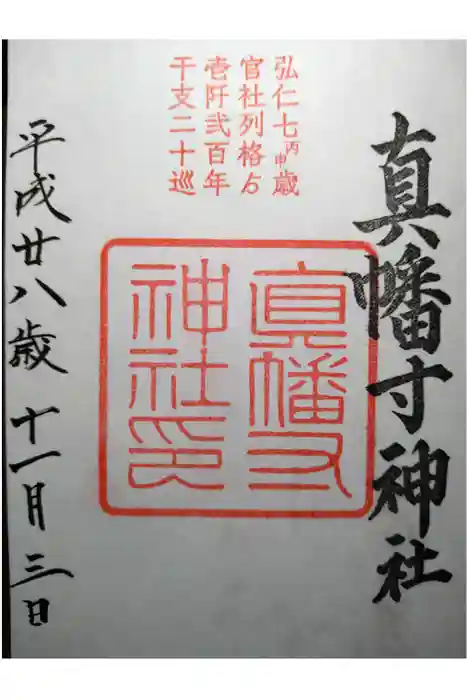 真幡寸神社
弘仁七丙申歳
官社列格ゟ
壱阡弐百年
干支二十巡
真幡寸
神社印
平成廿八歳 十一月三日